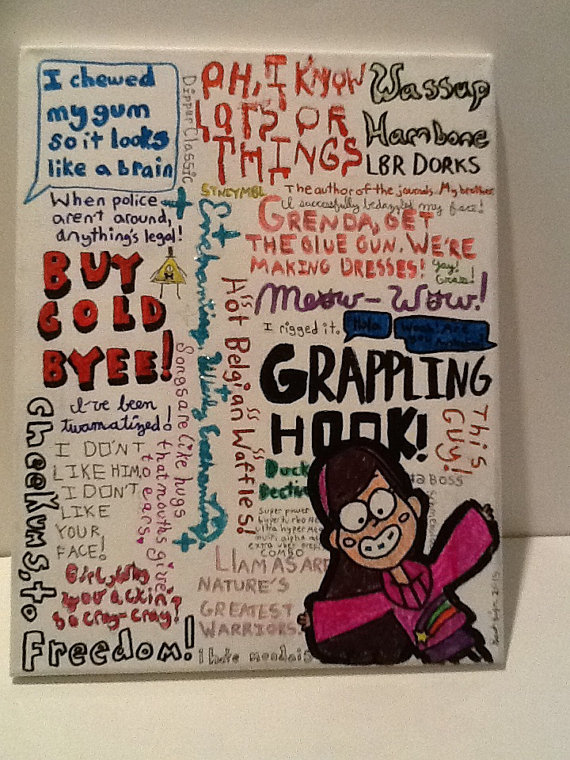 I chewed
my gum
so it looks
like a brain
Dipper Classic
OH, I KNOW
LOTS OF
THINGS
Wassup
Hambone
LBR DORKS
When police
aren't around,
anything's legal!
The author of the journals. My brother
I successfully bedazzled my face!
GRENDA, GET
THE GLUE GUN. WE'RE
MAKING DRESSES!
Yay!
BUY
GOLD
BYEE!
Enchanting
Hot Belgian Waffles!
Meow-Wow!
I rigged it.
GRAPPLING
HOOK!
This
Guy!
Songs are like hugs
that mouths give
to ears.
I've been
twamatized!
I DON'T
LIKE HIM
I DON'T
LIKE
YOUR
FACE!
Girl, why
you ackin'
so cray-cray!
Duck
BOSS
super power
COMBO
LLAMAS ARE
NATURE'S
GREATEST
WARRIORS!
Cheekums, to
Freedom!